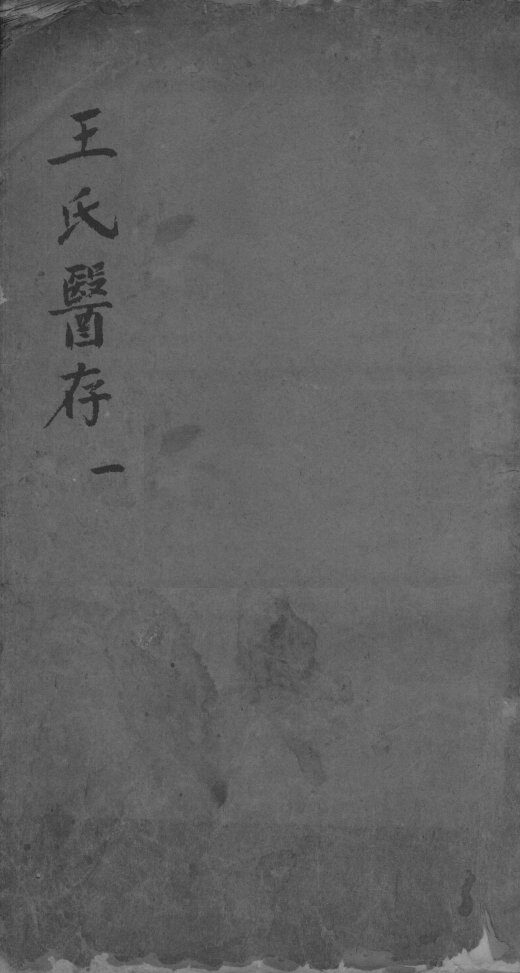 王氏醫存 一